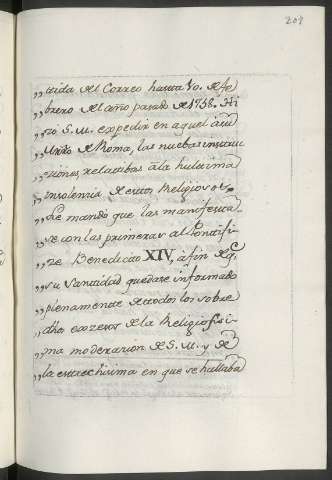 201
„ tida del Correo hasta 10. de fe
„ brero del año pasado de 1758. Hi
„ zo S. M. expedir en aquel a su
„ Mntro de Roma, las nuebas instruc
„ ciones relatibas à la hultima
„ insolencia de estos Religiosos.
„ Le mandó que las manifesta
„ se con las primeras al Pontifi
„ ze Benedicto XIV, à fin de q.e
„ su Santidad quedase informado
„ plenamente de todos los sobre
„ dhos excesos de la Religiosisi
„ ma moderacion de S. M. y de
„ la estrechisima en que se hallaba